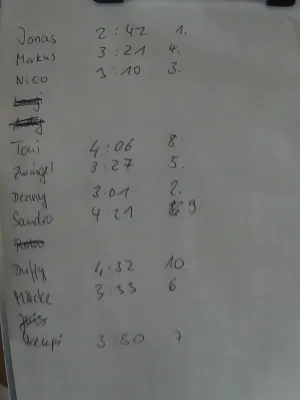 Jonas 2:42 1.
Markus 3:21 4.
Nico 3:10 3.
Toni 4:06 8
Zwingel 3:27 5.
Denny 3:01 2.
Sandro 4:21 9
Robo
Duffy 4:32 10.
Mücke 3:33 6
3:50 7